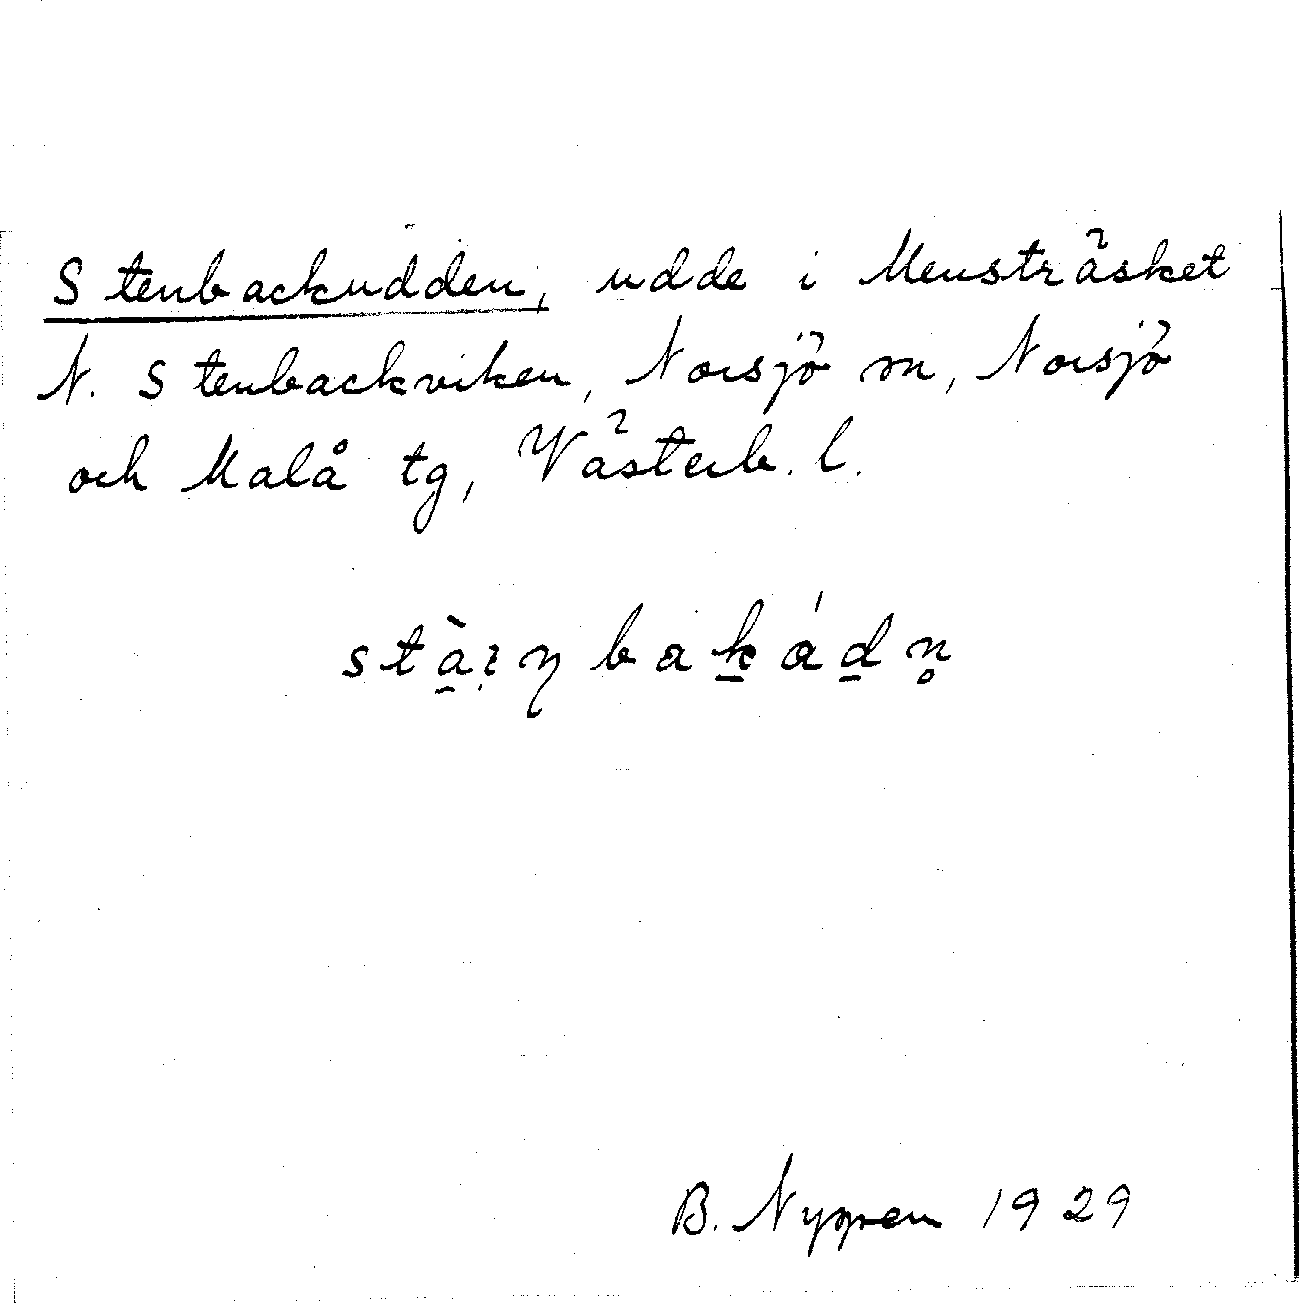 Stenbackudden, udde i Mensträsket
N. Stenbackviken, Norsjö sn, Norsjö
och Malå tg, Västerb. l.
stà̱ı̣ŋ bak̲ád̲n̥
B. Nygren 1929